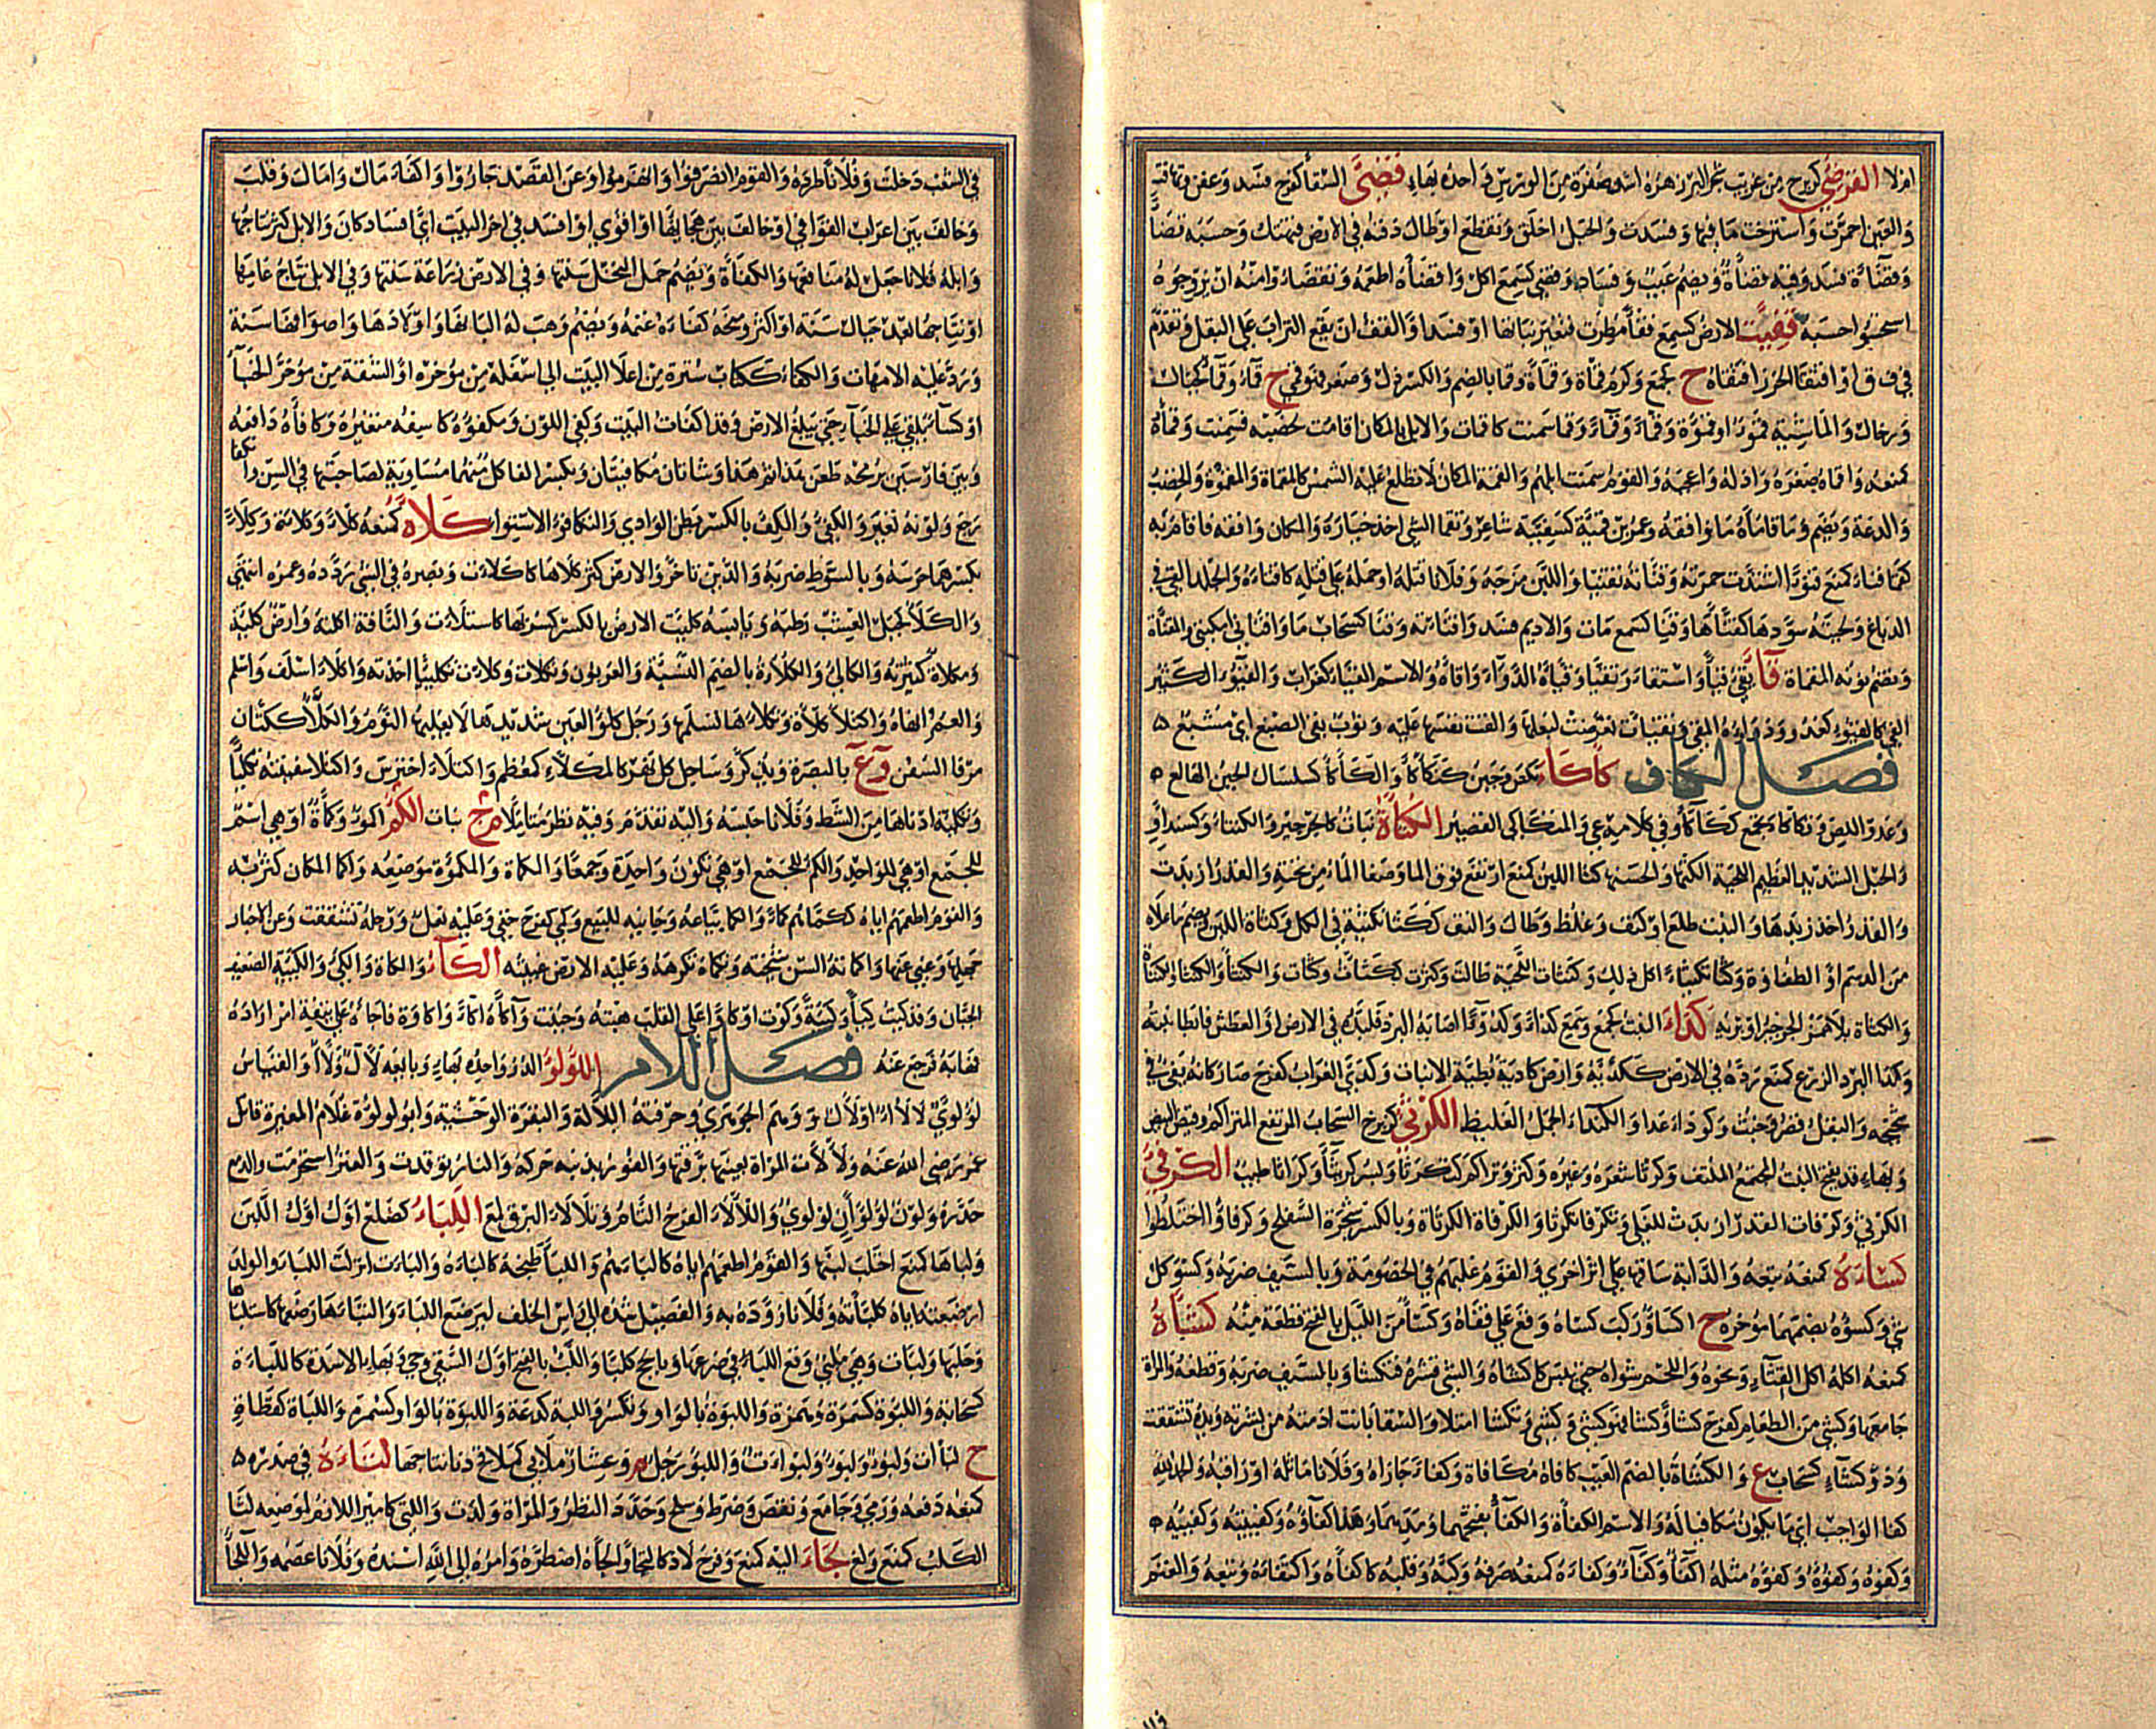 او لا القرضئ كزبرج من غريب شجر البر زهره اشد صفرة من الورس واحده بهاء قضئ السقا كفرح فسد وعفن وتهافت
والعين احمرت واسترخت مآقيها وفسدت والحبل اخلق وتقطع او طال دفنه في الارض فتهتك وحسبه قضأ
وقضآءة فسد وفيه قضأة ويضم عيب وفساد وقضئ كسمع اكل واقضأه اطعمه وتقضاؤا منه ان يزوجوه
استخسوا حسبه قفئت الارض كسمع قفأ مطرت فتغير نباتها او فسد او القفء ان يقع التراب على البقل وتقدم
في ف ق ا واقتفأ الخرز افتقاه ح كجمع وكرم قمأة وقمآءة وقما بالضم والكسر ذل وصغر فهو قمئ ح قمآء وقمآء كجبال
ورخال والماشية قموءا وقموءة وقمأ وقماءة وقما سمنت كاقمات والابل بالمكان اقامت لخصبه فسمنت وقمأه
كمنعه واقماه صغره واذله واعجبه والقوم سمنت ابلهم والقمء المكان لا تطلع عليه الشمس كالمقماة والمقموة والخصب
والدعة ويضم وما قاماه ما وافقه وعمرو بن قميئة كسفينة شاعر وتقما الشئ اخذ خياره والمكان وافقه فاقام به
كقما قنا كمنع قنوءا اشتدت حمرته وقنأته تقنيا واللبن مزجه وفلانا قتله او حمله على قتله كاقناءه والجلد القي في
الدباغ ولحيته سودها كقنأها وقنيا كسمع مات والاديم فسد واقناته وقنا كسحاب ماء واقنا ني امكنني والمقنأة
وتضم نونه المقماة قآء يقئ قيأ واستقاء وتقيأ وقيأه الدوآء واقاءه والاسم القياء كغراب والقيوء الكثير
القئ كالقيو كعدو ودوآءه المقئ وتقيات تعرضت لبعلها والقت نفسها عليه وثوب يقئ الصبغ اي مشبع ۵
فصل الكاف كأكاء نكص وجبن كتكأكأ والكأكأ كسلسال الجبن الهالع
وعدو اللص وتكأكأ تجمع ككأكأ وفي كلامه عي والمتكأكئ القصير الكتأة نبات كالجرجير والكنتاو كسنداو
والحبل الشديد والعظيم اللحية الكثها والحسنها كثا اللبن كمنع ارتفع فوق الما وصفا الماء من تحته والقدر ازبدت
والقدر اخذ زبدها والنبت طلع او كثف وغلظ وطال والتف ككثا تكثئة في الكل وكثاة اللبن ويضم ما علاه
من الدسم او الطفاوة وكثا تكثياء اكل ذلك وكنثات اللحية طالت وكثرت ككثات وكثات والكنثأ والكنثاو الكثاة
والكثاة بلا همز الجرجير او بزيه كداء النبت كجمع وسمع كداء وكدوءا اصابه البرد فلبده في الارض او العطش فابطا نبته
وكدا البرد الزرع كمنع رده في الارض ككداه وارض كادئة بطية الانبات وكدئ الغراب كفرح صار كانه يقئ في
شحيجه والبقل قصر وخبث وكوداء عدا والكنداء الجمل الغليظ الكرثئ كزبرج السحاب المرتفع المتراكم وقيض البيض
وبهاء قد يفتح النبت المجتمع الملتف وكرثا شعره وغيره وكثر وتراكم كتكرثا وبسر كريثأ وكراثا طيب الكرفئ
الكرثئ وكرفات القدر ازبدت للغلي وتكرفا تكرثا والكرفاة الكرثاة وبالكسر شجرة الشفلح وكرفاؤا اختلطوا
كساءه كمنعه تبعه والدابة ساقها على اثر اخرى والقوم غلبهم في الخصومة وبالسيف ضربه وكسؤ كل
شئ وكسؤه بضمهما مؤخره ح اكساء وركب كساه وقع على قفاه وكسأ من الليل بالفتح قطعة منه كشأه
كمنعه اكله اكل القثاء ونحوه واللحم شواه حتى يبس كاكشاه والشئ قشره فتكشا وبالسيف ضربه وقطعه والمراة
جامعها وكشئ من الطعام كفرح كشأ وكشا فهو كشئ وكشئ وتكشا امتلا والسقا بانت ادمته من بشرته ويده تشققت
وذو كشاء كسحاب ع والكشأة بالضم العيب كافاه مكافاة وكفاء جازاه وفلانا ماثله او راقبه والحمد لله
كفا الواجب اي ما يكون مكافيا له والاسم الكفأة والكفأ بفتحهما ومدهما وهذا كفآؤه وكفيئته وكفيئه
وكفؤه وكفؤه وكفؤه وكفوه مثله اكفآ وكفآء وكفاءه كمنعه صرفه وكبه وقلبه كاكفاه واكتفاءه وتبعه والغنم
في الشعب دخلت وفلانا طرده والقوم انصرفوا وانهزموا وعن القصد جاروا واكفاء مال وامال وقلب
وخالف بين اعراب القوافي او خالف بين هجايها او اقوي او افسد في اخر البيت اي افساد كان والابل كثر نتاجها
وابله فلانا جعل له منافعها والكفاة ويضم حمل النخل سنتها وفي الارض زراعة سنتها وفي الابل نتاج عامها
او نتاجها بعد حيال سنة او اكثر ومنحه كفاءة غنمه ويضم وهب له البانها واولادها واصوافها سنة
ورد عليه الامهات والكفاء ككتاب سترة من اعلا البيت الي اسفله من مؤخره او الشقة من مؤخر الخبآ
او كسآ يلقي على الخبآ حتي يبلغ الارض وقد اكفات البيت وكفئ اللون ومكفؤه كاسفه متغيره وكافأه دافعه
وبين فارسين برمحه طعن هذا ثم هذا وشاتان مكافئتان وبكسر الفا كل منهما مساوية لصاحبتها في السن وانكفا
رجع ولونه تغير والكفئ والكفء بالكسر بطن الوادي والتكافؤ الاستوا كلاءه كمنعه كلاء وكلائة وكلاء
بكسرهما حرسه وبالسوط ضربه والدين تاخر والارض كثر كلاها كاكلات وبصره في الشئ ردده وعمره انتهي
والكلاء كجبل العشب رطبه ويابسه كلئت الارض بالكسر كثر بها كاستلاءت والناقة اكلته وارض كلية
ومكلاة كثيرته والكالئ والكلاءة بالضم النسئة والعربون وتكلات وكلات تكليئا اخذته واكلاء اسلف واسلم
والعمر انهاه واكتلا كلاة وتكلاءها تسلمها ورجل كلوء العين شديدها لا يغلبها النوم والكلاء ككتان
مرفا السفن وع بالبصرة ويذكر وساحل كل نهر كالمكلاء كمعظم واكتلاء احترس واكتلا سفينته تكليا
وتكلية ادناها من الشط وفلانا حبسه واليه تقدم وفيه نظر متاملا الكمء نبات م ج اكمؤ وكماة او هي اسم
للجمع او هي للواحد والكمء للجمع او هي تكون واحدة وجمعا والمكماة والمكموة موضعه واكما المكان كثر به
والقوم اطعمهم اياه ككماءهم كماء والكما بياعه وجانيه للبيع وكمئ كفرح حفي وعليه نعل ورجله تشققت وعن الاخبار
جهلها وغبي عنها واكماته السن شيخته وتكماه تكرهه وعليه الارض غيبته الكآء والكاة والكئ والكيئة الضعيف
الجبان وقد كئت كيأ وكيأة وكوت اوكا واعلى القلب هبته وجبنت واكاءه اكاء واكاءة فاجاءه على تئفة امر اراده
فهابه فرجع عنه فصل اللام اللؤلؤ الدر واحده بهاء وبايعه لآل ولآاء والقياس
لؤلؤي لا لاء ولالال ووهم الجوهري وحرفته اللالة والبقرة الوحشية وابو لولوة غلام المغيرة قاتل
عمر رضي الله عنه ولالات المراة بعينها برقتها والفور بذنبه حركه والنار توقدت والعنز استحرمت والدمع
حدره ولون لؤلؤان لؤلؤي واللالاء الفرح التام وتلالاء البرق لمع اللباء كضلع اول اللبن
ولباها كمنع احتلب لبنها والقوم اطعمهم اياه كالباءهم واللبا طبخه كالباءه والباءت انزلت اللباء والولد
ارضعته اياه كلباته وفلانا زوده به والفصيل شده الى راس الخلف ليرضع اللباء والتباءها رضعها كاستلباها
وحلبها ولبات وهي ملبئ وقع اللباء في ضرعها وبالحج كلبا واللبء بالفتح اول السقي وحي وبهاء الاسدة كاللباءة
كسحابة واللبوة كسمرة وهمزة واللبوة بالواو وتكسر واللبة كدعة واللبوة بالواو كسمرة واللباة كقطاة
ح لباات ولبوء ولبوة ولبوءات واللبؤ رجل م وعشار ملابئ كملاقح دنا نتاجها لتاءه في صدره ۵
كمنعه دفعه ورمي وجامع ونقص وضرط وسلح وحدد النظر والمراة ولدت واللتئ كامير اللازم لموضعه لثا
الكلب كمنع ولغ لجاء اليه كمنع وفرح لاذ كالتجا والجاه اضطره وامره الي الله اسنده وفلانا عصمه واللجأ